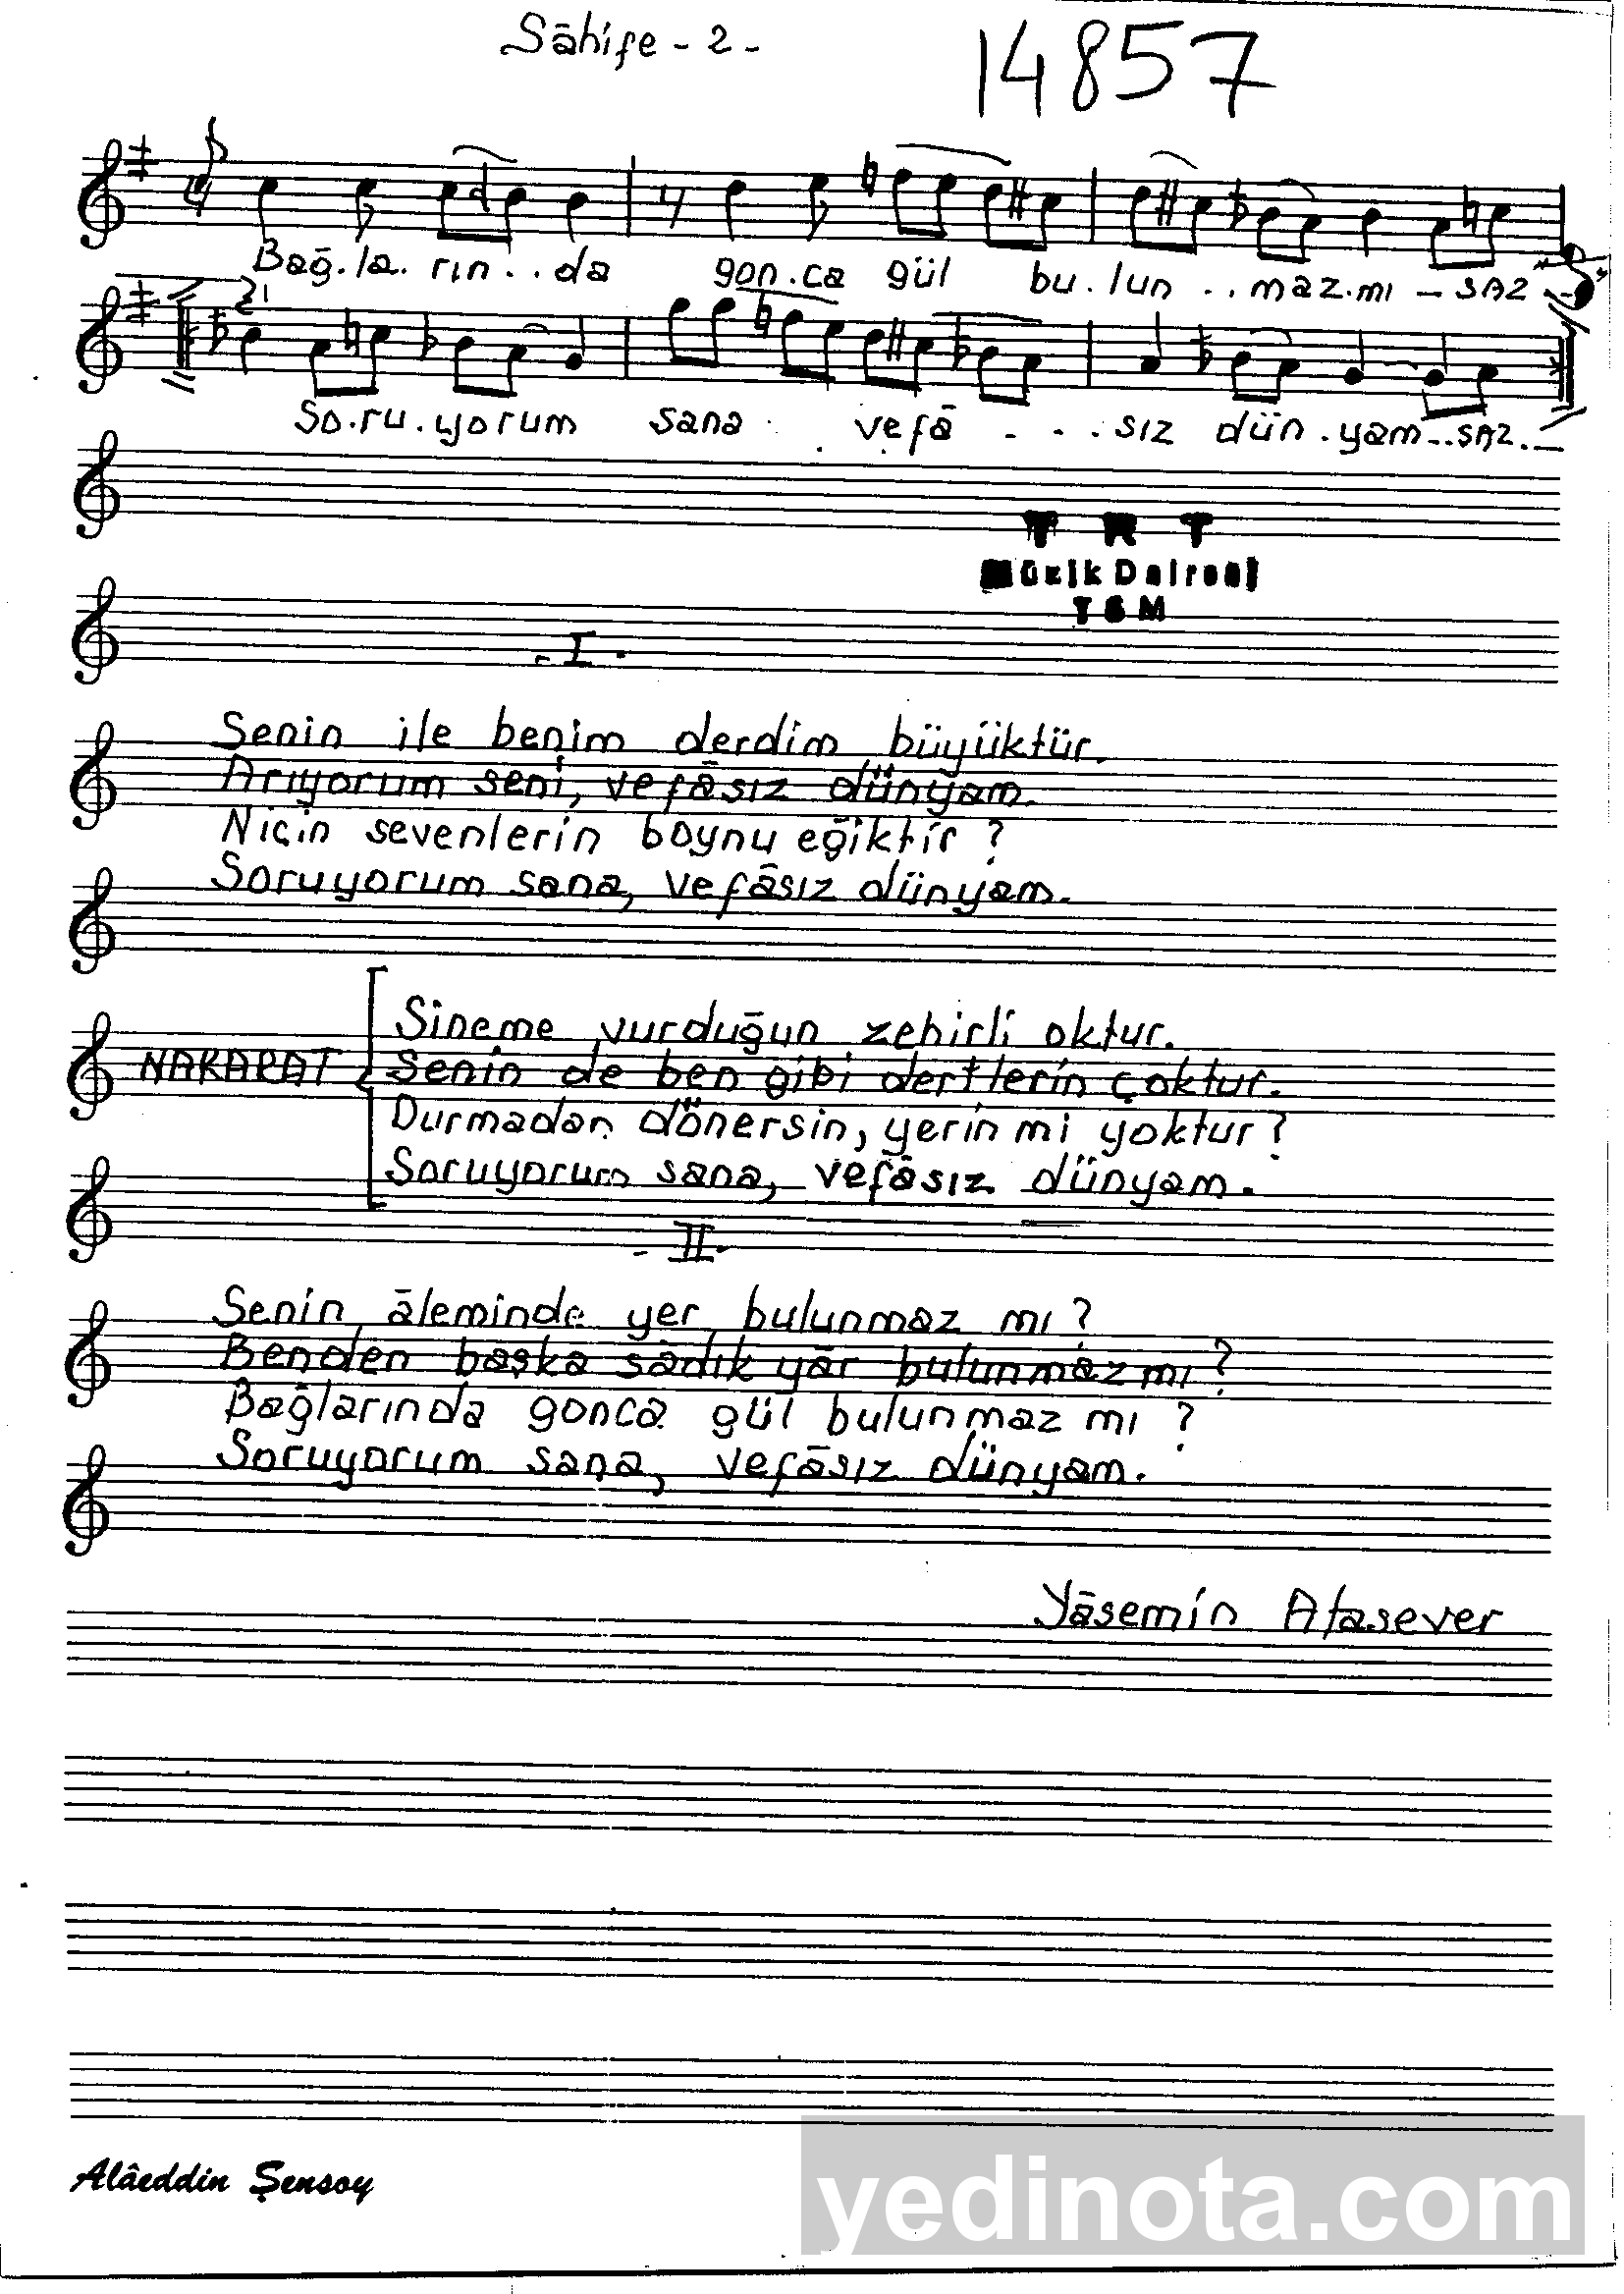 Sāhife - 2 -
14857
Bağ.la.rın..da gon.ca gül bu.lun..maz.mı - SAZ -
So.ru.yorum sana . . vefā - - . sız dün.yam..SAZ.-
T R T
Müzik Dairesi
T S M
- I -
Senin ile benim derdim büyüktür.
Arıyorum seni, vefāsız dünyam.
Niçin sevenlerin boynu eğiktir ?
Soruyorum sana, vefāsız dünyam.
Sineme vurduğun zehirli oktur.
NAKARAT Senin de ben gibi dertlerin çoktur.
Durmadan dönersin, yerin mi yoktur ?
Soruyorum sana, vefāsız dünyam.
- II -
Senin āleminde yer bulunmaz mı ?
Benden başka sādık yār bulunmaz mı ?
Bağlarında gonca gül bulunmaz mı ?
Soruyorum sana, vefāsız dünyam.
Yāsemin Atasever
Alâeddin Şensoy
yedinota.com